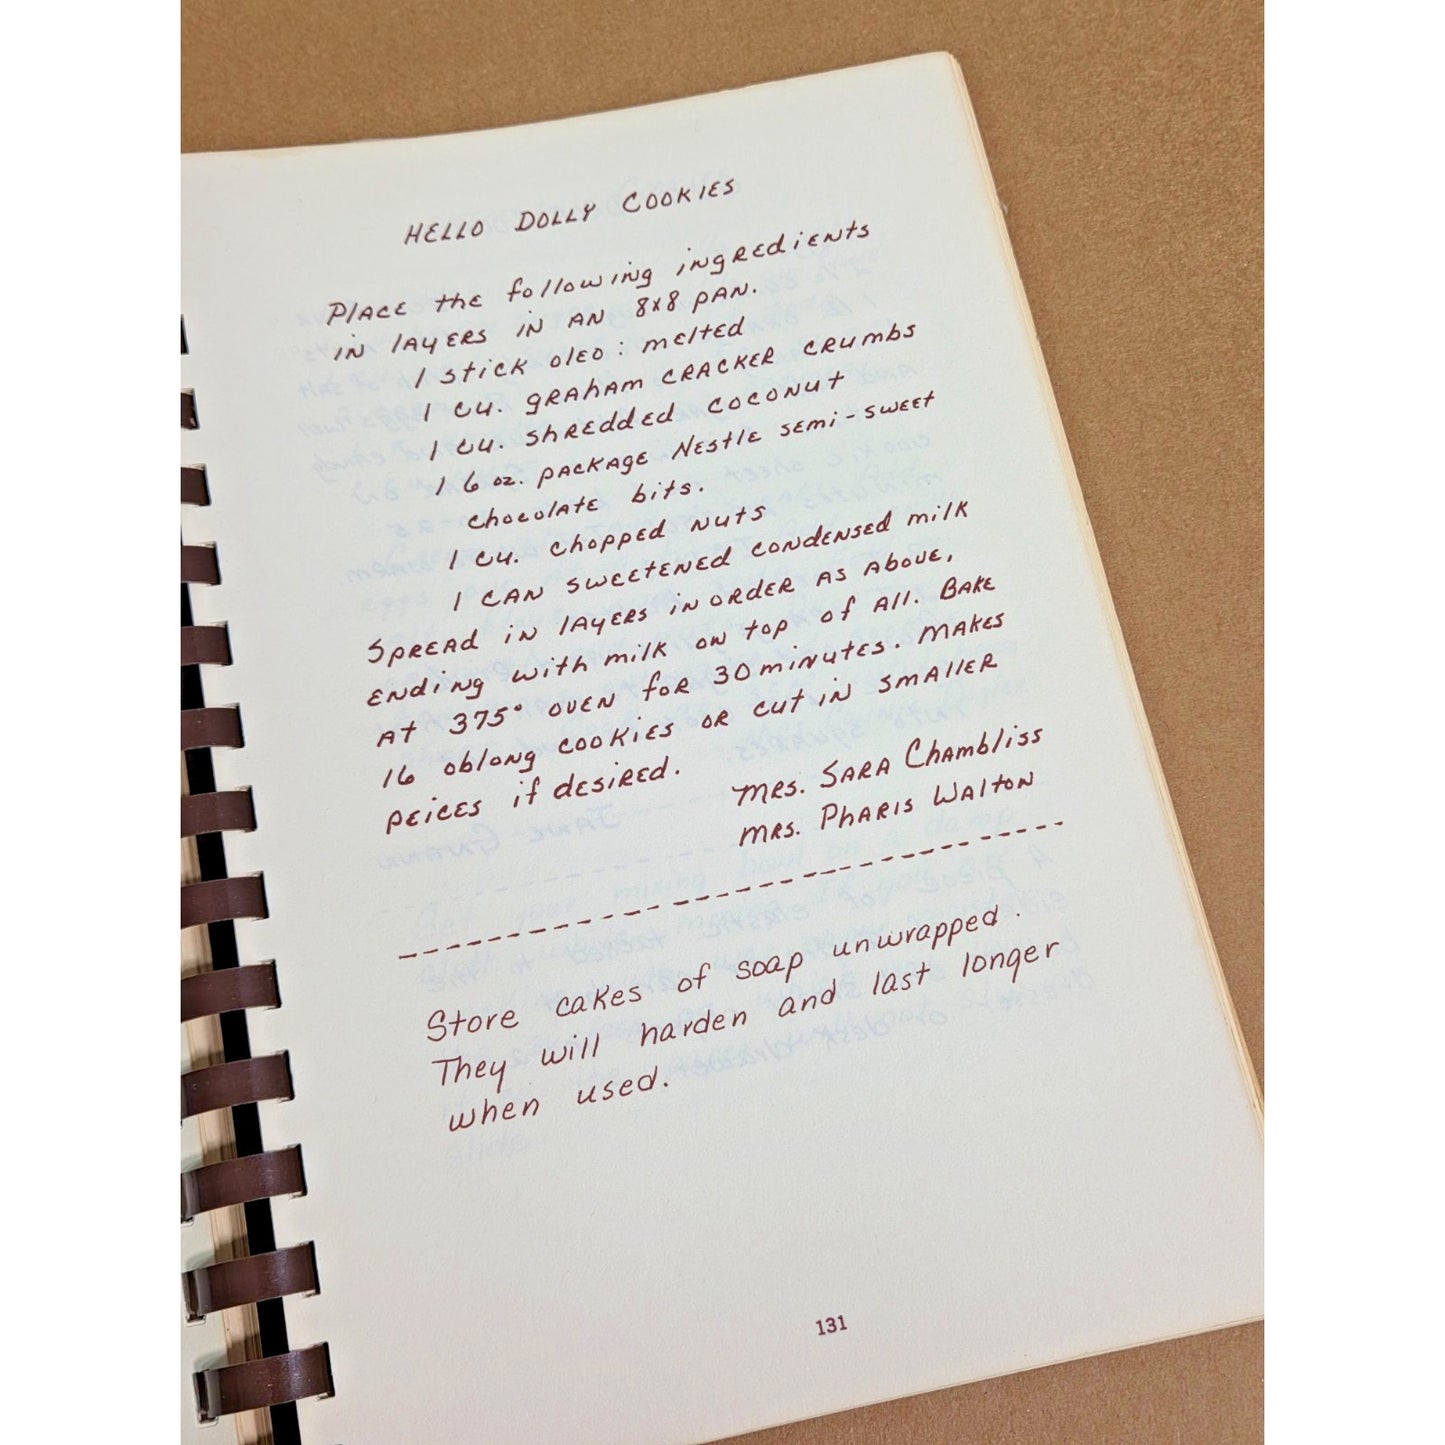 HELLO DOLLY COOKIES
Place the following ingredients
in layers in an 8x8 pan.
1 stick oleo: melted
1 cu. graham cracker crumbs
1 cu. shredded coconut
1 6 oz. package Nestle semi-sweet
chocolate bits.
1 cu. chopped nuts
1 can sweetened condensed milk
Spread in layers in order as above,
ending with milk on top of all. Bake
at 375° oven for 30 minutes. Makes
16 oblong cookies or cut in smaller
peices if desired.
Mrs. Sara Chambliss
Mrs. Pharis Walton
Store cakes of soap unwrapped.
They will harden and last longer
when used.
131